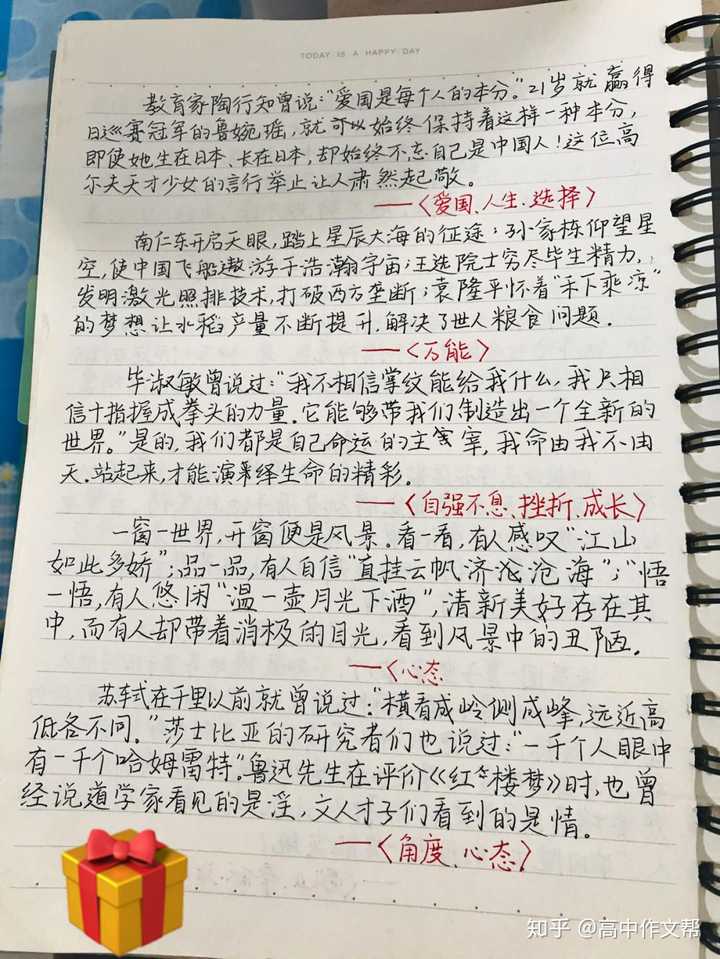 TODAY IS A HAPPY DAY
教育家陶行知曾说:“爱国是每个人的本分。”21岁就赢得
日巡赛冠军的鲁婉瑶,就可以始终保持着这样一种本分,
即使她生在日本、长在日本,却始终不忘自己是中国人!这位高
尔夫天才少女的言行举止让人肃然起敬。
——〈爱国、人生、选择〉
南仁东开启天眼,踏上星辰大海的征途;孙家栋仰望星
空,使中国飞船遨游于浩瀚宇宙;王选院士穷尽毕生精力,
发明激光照排技术,打破西方垄断;袁隆平怀着“禾下乘凉”
的梦想让水稻产量不断提升,解决了世人粮食问题.
——〈万能〉
毕淑敏曾说过:“我不相信掌纹能给我什么,我只相
信十指握成拳头的力量.它能够带我们制造出一个全新的
世界。”是的,我们都是自己命运的主宰,我命由我不由
天.站起来,才能演绎生命的精彩.
——〈自强不息、挫折、成长〉
一窗一世界,开窗便是风景.看一看,有人感叹“江山
如此多娇”;品一品,有人自信“直挂云帆济沧海”;“悟
一悟,有人悠闲“温一壶月光下酒”,清新美好存在其
中,而有人却带着消极的目光,看到风景中的丑陋.
——〈心态
苏轼在千里以前就曾说过:“横看成岭侧成峰,远近高
低各不同。”莎士比亚的研究者们也说过:“一千个人眼中
有一千个哈姆雷特”.鲁迅先生在评价《红楼梦》时,也曾
经说道学家看见的是淫,文人才子们看到的是情。
——〈角度、心态〉
知乎 @高中作文帮